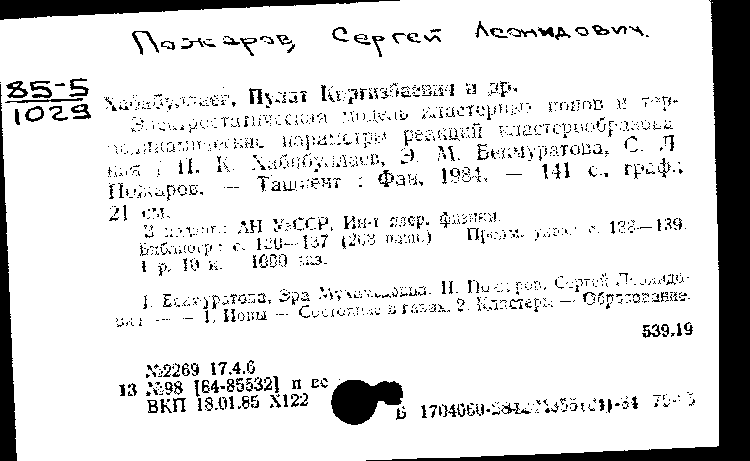 Пожаров, Сергей Леонидович.
85-5
1029
Хабибуллаев, Пулат Киргизбаевич и др.
Электростатическая модель кластерных ионов и тер-
модинамические параметры реакций кластерообразова
ния / П. К. Хабибуллаев, Э. М. Бекмуратова, С. Л
Пожаров. — Ташкент : Фан, 1984. — 141 с., граф.;
21 см.
В надзаг.: АН УзССР, Ин-т ядер. физики.
Библиогр.: с. 130—137 (203 назв.) Предм. указ.: с. 138—139.
1 р. 10 к. 1000 экз.
1. Бекмуратова, Эра Мухамедовна. II. Пожаров, Сергей Леонидо-
вич — — 1. Ионы — Состояние в газах. 2. Кластеры — Образование.
539.19
№2269 17.4.6
13 №98 [84-85532] п вс
ВКП 18.01.85 Х122
Б 1704060-